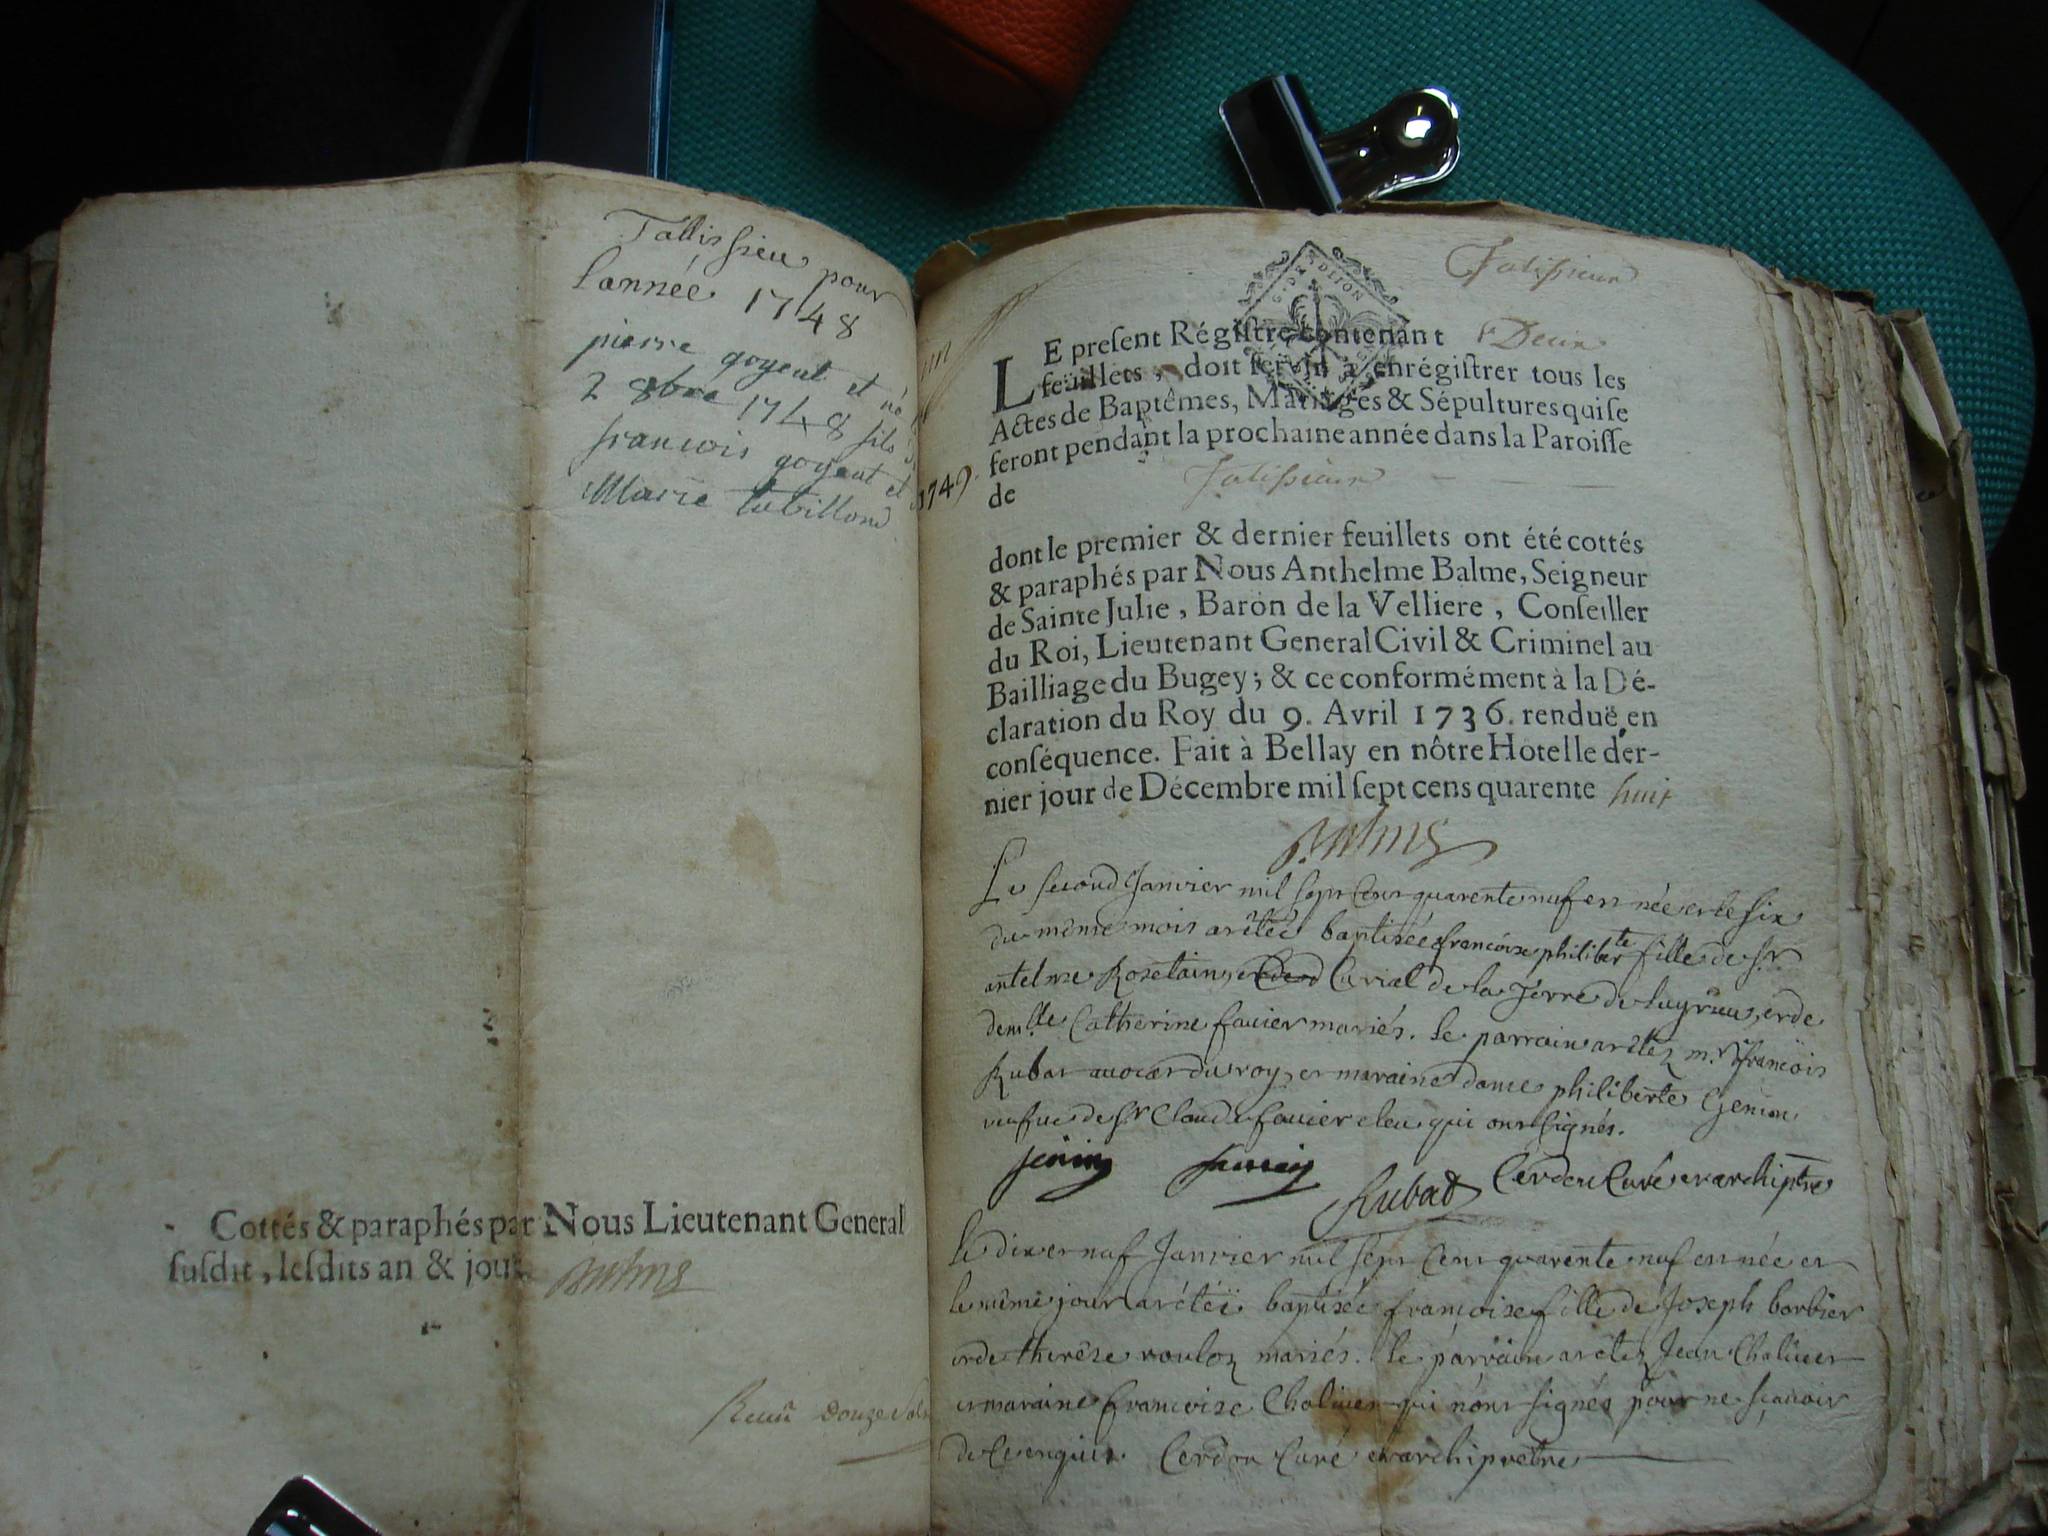 Tallissieu pour
l'année 1748
pierre goyeut et né
2 8bre 1748 fils
francois goyeut et
Marie tubillond
Cottés & paraphés par Nous Lieutenant General
ſuſdit, leſdits an & jour.
Balme
Receu douze sols
G. D. DE DIJON
Talissieux
1749.
LE preſent Régiſtre contenant Deux
feüillets, doit ſervir à enrégiſtrer tous les
Actes de Baptêmes, Mariages & Sépultures qui ſe
feront pendant la prochaine année dans la Paroiſſe
de Talissieux
dont le premier & dernier feuillets ont été cottés
& paraphés par Nous Anthelme Balme, Seigneur
de Sainte Julie, Baron de la Velliere, Conſeiller
du Roi, Lieutenant General Civil & Criminel au
Bailliage du Bugey; & ce conformément à la Dé-
claration du Roy du 9. Avril 1736. renduë en
conſéquence. Fait à Bellay en nôtre Hotel le der-
nier jour de Décembre mil ſept cens quarente huit
Balme
Le second Janvier mil sept Cens quarente nuf en née et le six
du même mois a étéé baptisée francoise philiberte fille de Sr
antelme Rosetain, Curial de la Terre de Luyrieus, et de
demlle Catherine fauier mariés. le parrain a étéz m.r francois
Rubat auocat du roy, et maraine dame philiberte Genin
uefue de Sr Claude fauier eleu qui ont signés.
jenin fauier Rubat Cerdon Curé et archiptre
le dix et nuf Janvier mil sept Cens quarente nuf en née et
le même jour a étéé baptisée francoise fille de Joseph barbier
et de therèse rouloz mariés. le parrain a étéz Jean Chaliuer
et maraine francoise Chaliuer qui n'ont signés pour ne sçauoir
de Ce enquis. Cerdon Curé et archipretre